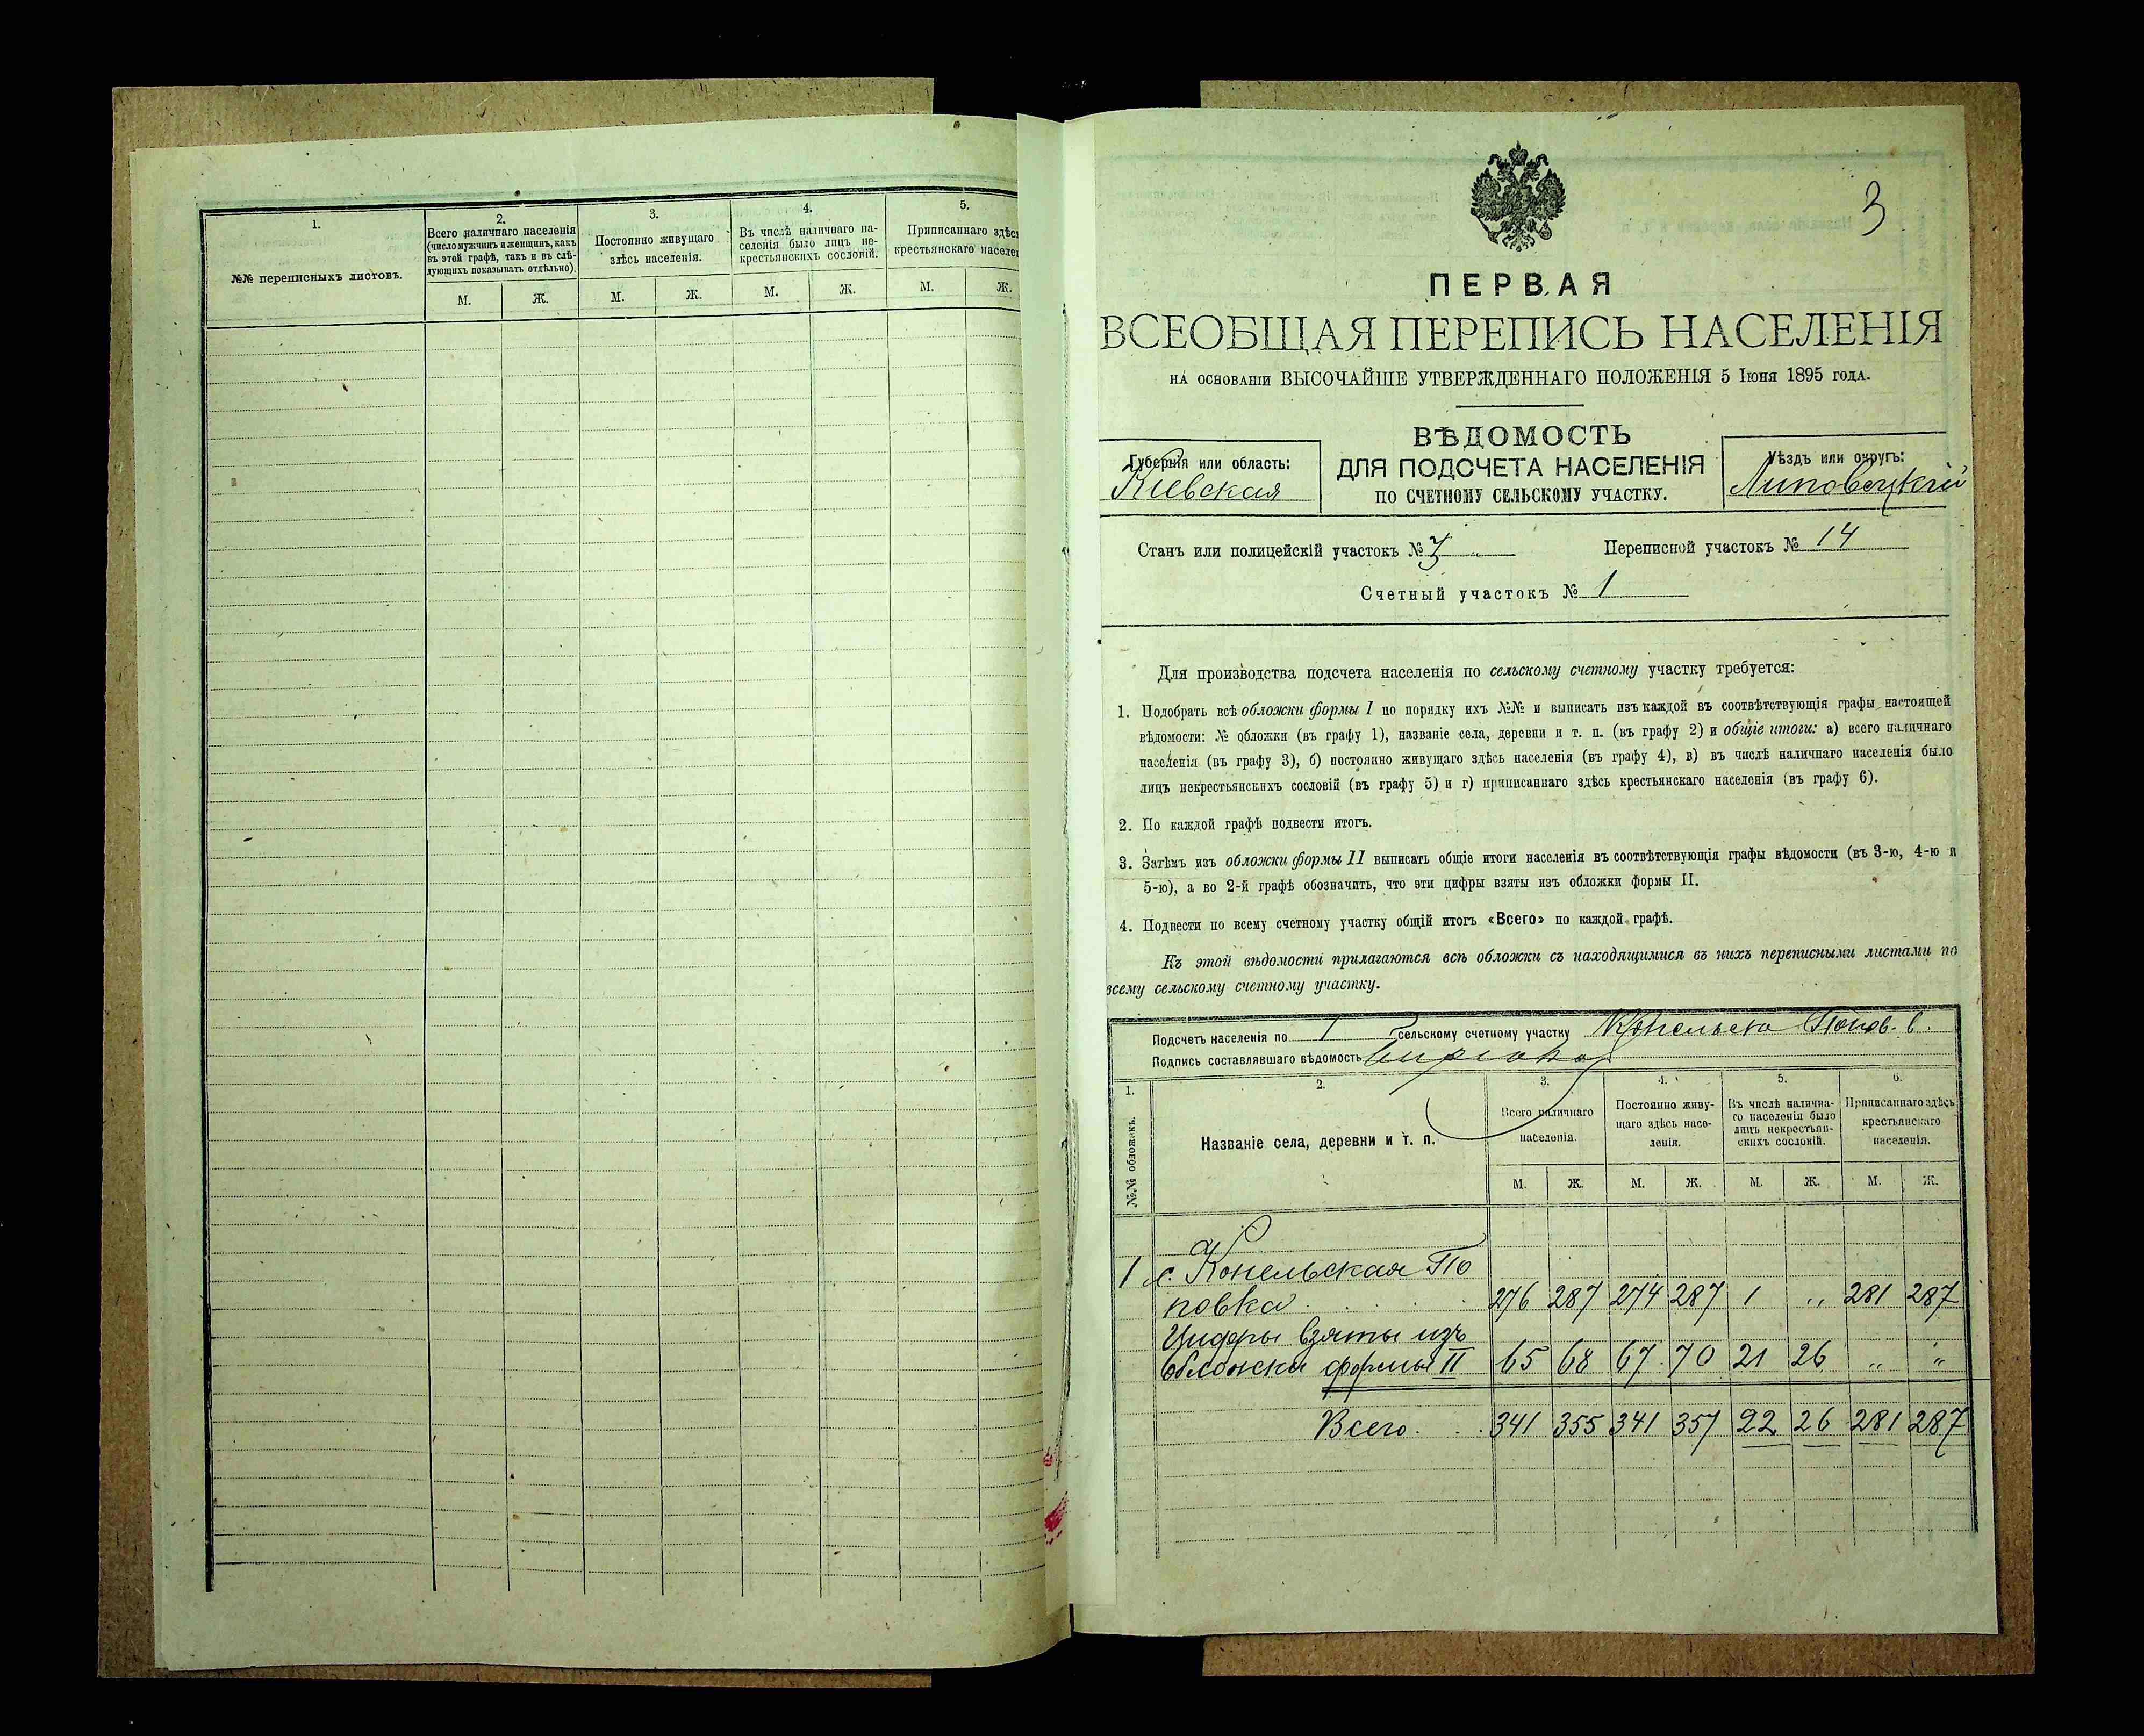 1.
2.
3.
4.
5.
№№ переписныхъ листовъ.
Всего наличнаго населенія
(число мужчинъ и женщинъ, какъ
въ этой графѣ, такъ и въ слѣ-
дующихъ показывать отдѣльно).
Постоянно живущаго
здѣсь населенія.
Въ числѣ наличнаго на-
селенія было лицъ не-
крестьянскихъ сословій.
Приписаннаго здѣсь
крестьянскаго населен
М. Ж. М. Ж. М. Ж. М. Ж.
3
ПЕРВАЯ
ВСЕОБЩАЯ ПЕРЕПИСЬ НАСЕЛЕНІЯ
НА ОСНОВАНІИ ВЫСОЧАЙШЕ УТВЕРЖДЕННАГО ПОЛОЖЕНІЯ 5 Іюня 1895 ГОДА.
Губернія или область:
Кіевская
ВѢДОМОСТЬ
ДЛЯ ПОДСЧЕТА НАСЕЛЕНІЯ
ПО СЧЕТНОМУ СЕЛЬСКОМУ УЧАСТКУ.
Уѣздъ или округъ:
Липовецкій
Станъ или полицейскій участокъ № 3 Переписной участокъ № 14
Счетный участокъ № 1
Для производства подсчета населенія по сельскому счетному участку требуется:
1. Подобрать всѣ обложки формы I по порядку ихъ №№ и выписать изъ каждой въ соотвѣтствующія графы настоящей
вѣдомости: № обложки (въ графу 1), названіе села, деревни и т. п. (въ графу 2) и общіе итоги: а) всего наличнаго
населенія (въ графу 3), б) постоянно живущаго здѣсь населенія (въ графу 4), в) въ числѣ наличнаго населенія было
лицъ некрестьянскихъ сословій (въ графу 5) и г) приписаннаго здѣсь крестьянскаго населенія (въ графу 6).
2. По каждой графѣ подвести итогъ.
3. Затѣмъ изъ обложки формы II выписать общіе итоги населенія въ соотвѣтствующія графы вѣдомости (въ 3-ю, 4-ю и
5-ю), а во 2-й графѣ обозначить, что эти цифры взяты изъ обложки формы II.
4. Подвести по всему счетному участку общій итогъ «Всего» по каждой графѣ.
Къ этой вѣдомости прилагаются всѣ обложки съ находящимися въ нихъ переписными листами по
всему сельскому счетному участку.
Подсчетъ населенія по 1 сельскому счетному участку Конельско Попов. в.
Подпись составлявшаго вѣдомость
1. 2. 3. 4. 5. 6.
№№ обложекъ.
Названіе села, деревни и т. п.
Всего наличнаго
населенія.
Постоянно живу-
щаго здѣсь насе-
ленія.
Въ числѣ налична-
го населенія было
лицъ некрестьян-
скихъ сословій.
Приписаннаго здѣсь
крестьянскаго
населенія.
М. Ж. М. Ж. М. Ж. М. Ж.
1 с. Конельская По
повка . . . . 276 287 274 287 1 „ 281 287
Цифры взяты изъ
обложки формы II 65 68 67 70 21 26 „ „
Всего . . 341 355 341 357 22 26 281 287